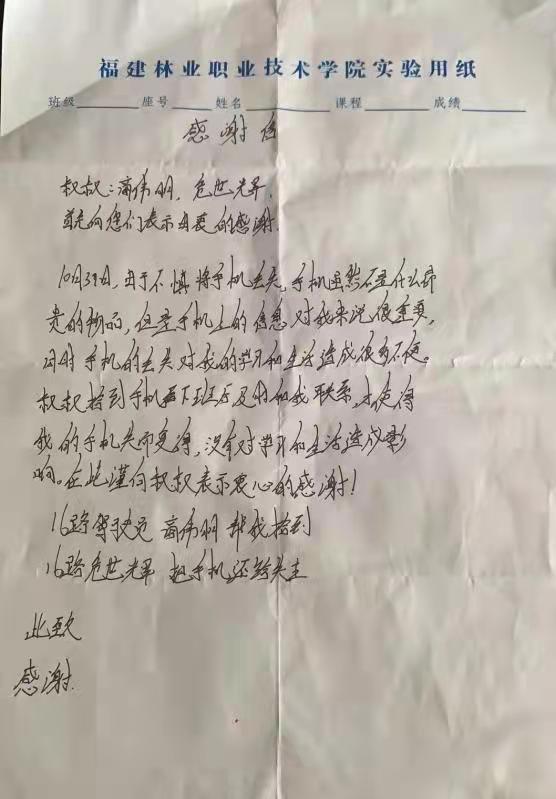 福建林业职业技术学院实验用纸
班级 座号 姓名 课程 成绩
感谢信
叔叔:高伟明,危世光昇.
首先向您们表示由衷的感谢.
10月39日,由于不慎将手机丢失,手机虽然不是什么昂
贵的物品,但是手机上的信息对我来说很重要,
同时手机的丢失对我的学习和生活造成很多不便。
叔叔捡到手机再下班后及时和我联系,才使得
我的手机失而复得,没有对学习和生活造成影
响。在此谨向叔叔表示衷心的感谢!
16路驾驶员 高伟明 帮我捡到
16路危世光昇 把手机还给失主
此致
感谢.